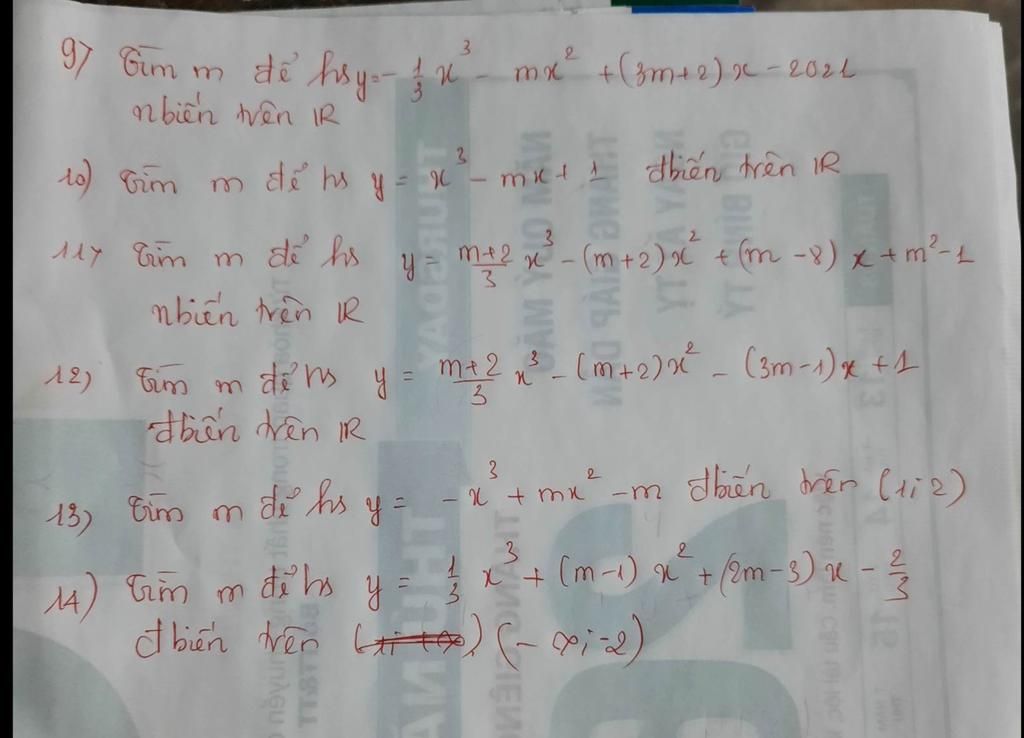 9) Tìm m để hs y = -1/3 x³ - mx² + (3m+2)x - 2021
nbiến trên ℝ
10) Tìm m để hs y = x³ - mx + 1 đbiến trên ℝ
11) Tìm m để hs y = m+2/3 x³ - (m+2)x² + (m-8)x + m² - 1
nbiến trên ℝ
12) Tìm m để hs y = m+2/3 x³ - (m+2)x² - (3m-1)x + 1
đbiến trên ℝ
13) Tìm m để hs y = -x³ + mx² - m đbiến trên (1; 2)
14) Tìm m để hs y = 1/3 x³ + (m-1)x² + (2m-3)x - 2/3
đbiến trên (-∞; -2)